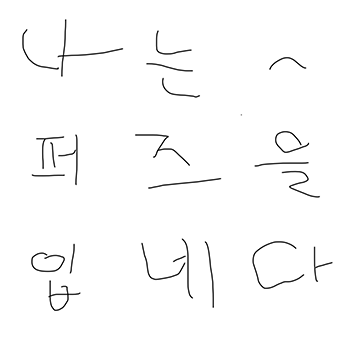 나 는 ^
퍼 즈 을
입 네 다